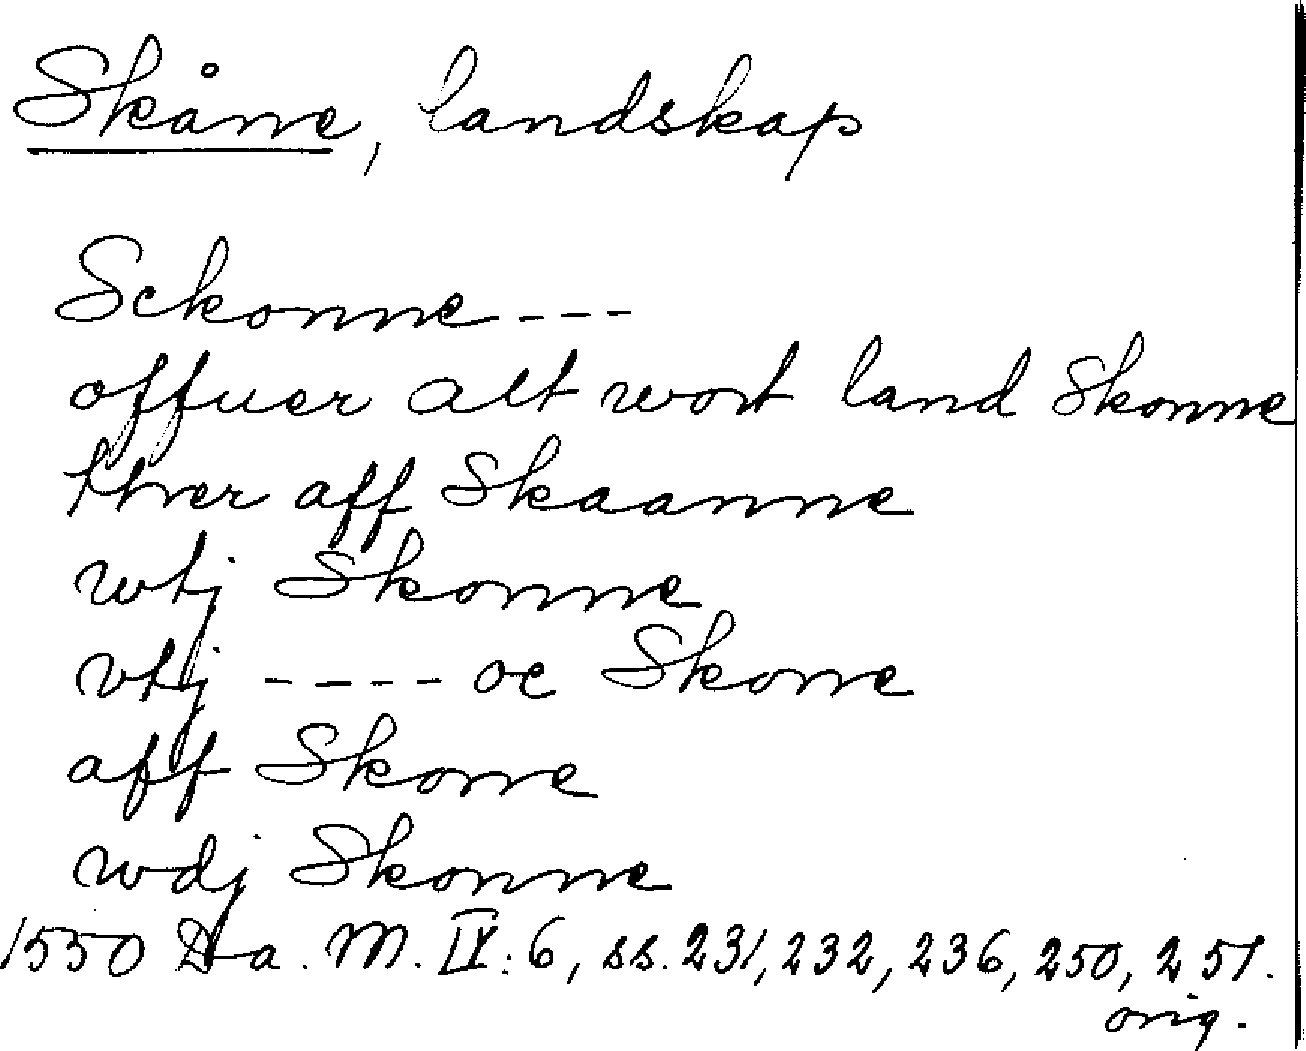 Skåne, landskap
Sckonne - - -
offuer alt wort land Skonne
thver aff Skaanne
wtj Skonne
vtj - - - - oc Skone
aff Skone
wdj Skonne
1550 Da. M. IV: 6, ss. 231, 232, 236, 250, 251.
orig.